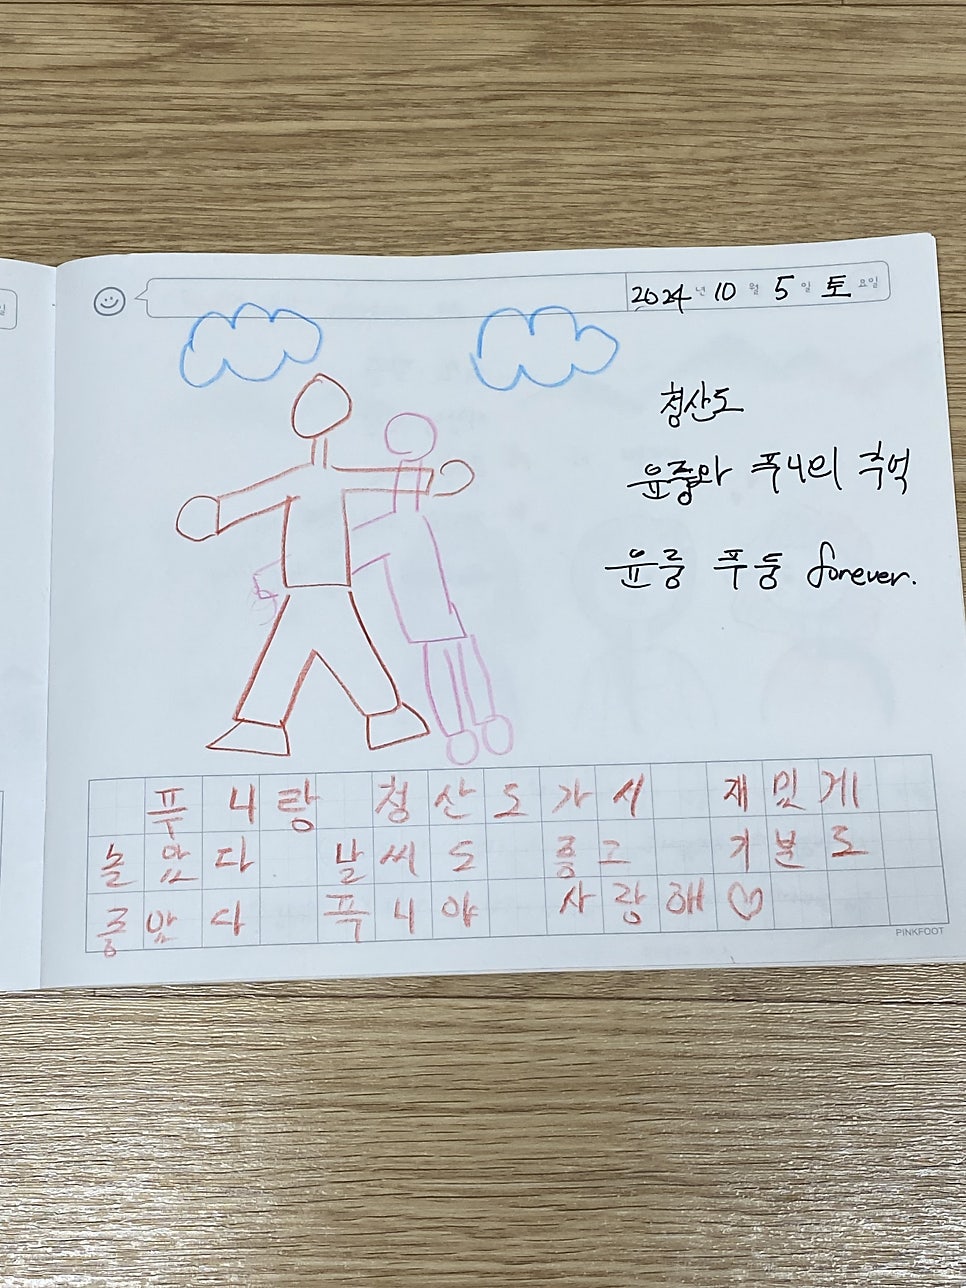 2024년 10월 5일 토요일
청산도
윤중와 푸니의 추억
윤중 푸둥 forever.
푸니랑 청산도가서 재밌게
놀았다 날씨도 좋고 기분도
좋았다 푸니야 사랑해♡
PINKFOOT
일